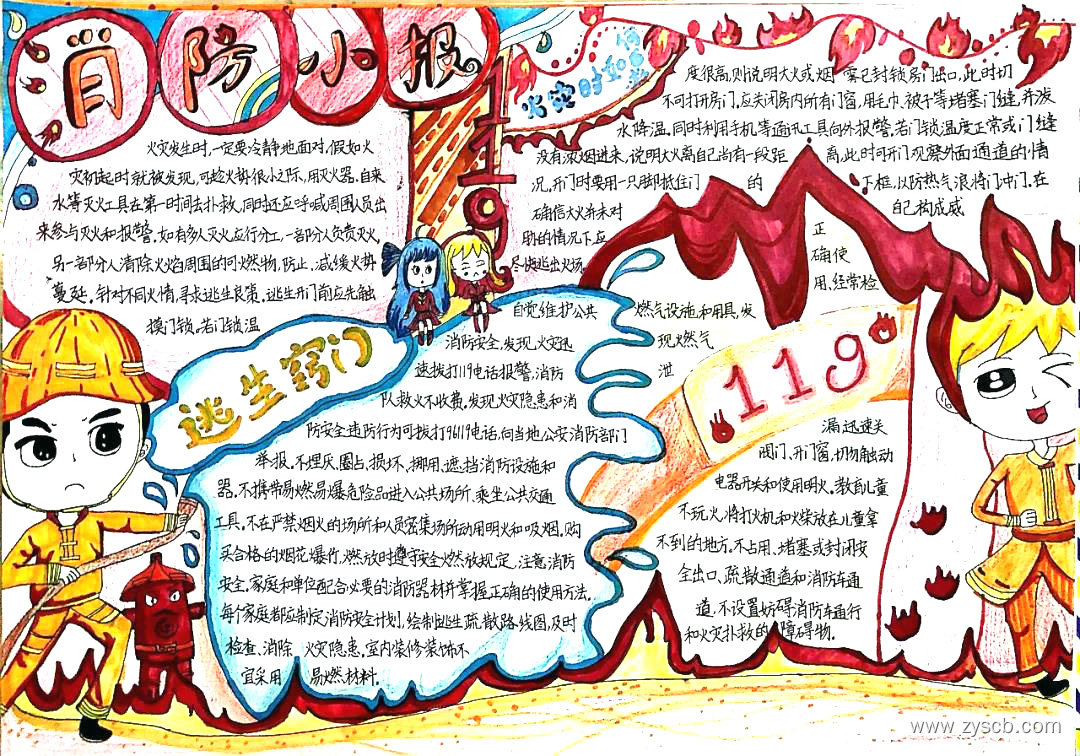 消防小报
119
火灾发生时,一定要冷静地面对,假如火
灾初起时就被发现,可趁火势很小之际,用灭火器、自来
水等灭火工具在第一时间去扑救,同时还应呼喊周围人员出
来参与灭火和报警。如有多人灭火应行分工,一部分人负责灭火,
另一部分人清除火焰周围的可燃物,防止、减缓火势
蔓延。针对不同火情,寻求逃生良策。逃生开门前应先触
摸门锁,若门锁温
火灾时如何
度很高,则说明大火或烟 雾已封锁房门出口,此时切
不可打开房门。应关闭房内所有门窗,用毛巾、被子等堵塞门缝,并泼
水降温。同时利用手机等通讯工具向外报警。若门锁温度正常或门缝
没有浓烟进来,说明大火离自己尚有一段距 离,此时可开门观察外面通道的情
况。开门时要用一只脚抵住门 的 下框,以防热气浪将门冲门。在
确信大火并未对 自己构成威
胁的情况下应
尽快逃出火场。
逃生窍门
自觉维护公共
消防安全,发现火灾迅
速拨打119电话报警,消防
队救火不收费。发现火灾隐患和消
防安全违防行为可拨打96119电话,向当地公安消防部门
举报。不埋厌、圈占、损坏、挪用、遮挡消防设施和
器。不携带易燃易爆危险品进入公共场所、乘坐公共交通
工具。不在严禁烟火的场所和人员密集场所动用明火和吸烟。购
买合格的烟花爆竹,燃放时遵守安全燃放规定,注意消防
安全。家庭和单位配合必要的消防器材并掌握正确的使用方法。
每个家庭都应制定消防安全计划,绘制逃生疏散路线图,及时
检查、消除 火灾隐患。室内装修装饰不
宜采用 易燃材料。
正
确使
用、经常检
燃气设施和用具,发
现燃气
泄
119
漏迅速关
阀门、开门窗,切勿触动
电器开关和使用明火。教育儿童
不玩火,将打火机和火柴放在儿童拿
不到的地方。不占用、堵塞或封闭安
全出口、疏散通道和消防车通
道,不设置妨碍消防车通行
和火灾扑救的障碍物。
www.zyscb.com